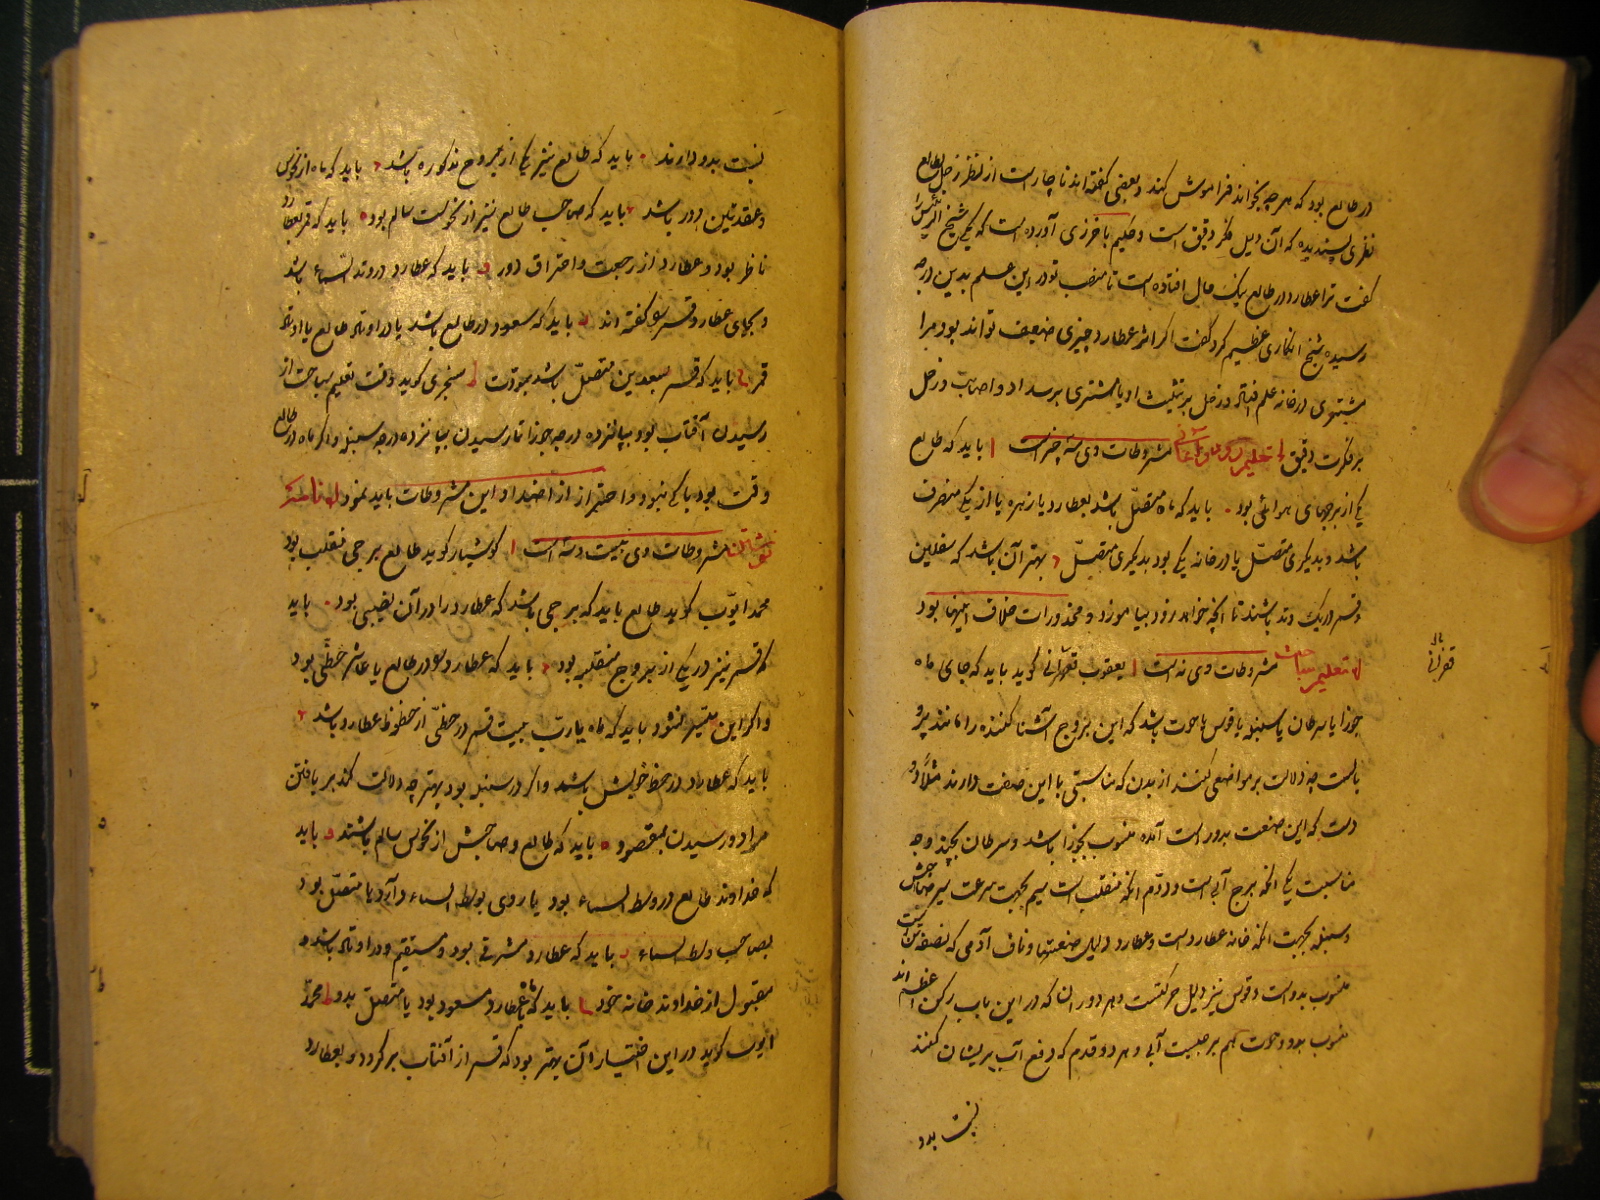 در طالع بود که هر چه بخواند فراموش کند و بعضی گفته اند ناچار است از نظر زحل بطالع
نظری پسندیده که آن دلیل فکر دقیق است و حکیم باخرزی آورده است که یکی شیخ الرئیس را
گفت ترا عطارد در طالع نیک حال افتاده است تا منصب تو در این علم بدین درجه
رسیده شیخ انکاری عظیم کرد گفت اگر اثر عطارد چیزی ضعیف تواند بود مرا
مشتری در خانه علم افتاده و زحل بر تثلیث او یا مشتری برسداد و اصابت و زحل
بر فکرت دقیق تعلیم مشروطات وی سه چیز است ا باید که طالع
یکی از برجهای هوائی بود باید که ماه متصل باشد بعطارد یا زهره یا از یکی منصرف
باشد و بدیگری متصل یا در خانه یکی بود بدیگری متصل بهتر آن باشد که سفلیین
و قمر در یک وتد باشند تا آنچه خواهد زود بیاموزد و محذورات خلاف اینها بود
تعلیم سباحت مشروطات وی نه است ا یعقوب قصرانی گوید باید که جای ماه
جوزا یا سرطان یا سنبله یا قوس یا حوت باشد که این بروج آشنا کننده را مانند پرو
بالست چه دلالت بر مواضعی کنند از بدن که مناسبتی با این صفت دارند مثلا دو
دست که این صنعت بدو راست آمده منسوب بجوزا باشد و سرطان بچند وجه
مناسبت یکی آنکه برج آبی است و دوم آنکه منقلب است سیم بجهت سرعت سیر صاحبش
و سنبله بجهت آنکه خانه عطارد است و عطارد دلیل صنعتها و ناف آدمی که نصفه تن است
منسوب بدوست و قوس نیز دلیل حرکتست و هر دو ران که در این باب رکن اعظم اند
منسوب بدو و حوت هم برجیست آبی و هر دو قدم که دفع آب بریشان کنند
نسبت بدو
قصرانی
نسبت بدو دارند باید که طالع نیز یکی از بروج مذکوره باشد باید که ماه از نحوس
و عقدتین دور باشد باید که صاحب طالع نیز از نحوست سالم بود باید که قمر بعطارد
ناظر بود و عطارد از رجعت و احتراق دور باید که عطارد در وتد السماء باشد
و بجای عطارد قمر گفته اند باید که سعود در طالع باشد یا در اوتاد طالع یا اوتاد
قمر باید که قمر بسعدین متصل باشد بمودت سنجری گوید وقت تعلیم سباحت از
رسیدن آفتاب بود بپانزده درجه جوزا تا رسیدن بپانزده درجه سنبله و اگر ماه در طالع
وقت بود باکی نبود و احتراز از اضداد این مشروطات باید نمود
نوشتن مشروطات وی بیست و سه است ا کوشیار گوید طالع برجی منقلب بود
محمد ایوب گوید طالع باید که برجی باشد که عطارد را در آن نصیبی بود باید
که قمر نیز در یکی از بروج منقلبه بود باید که عطارد و سعود در طالع یا عاشر حظی بود
و اگر این میسر نشود باید که ماه یا رب بیت قمر در حظی از حظوظ عطارد باشد
باید که عطارد در حظ خویش باشد و اگر در سنبله بود بهتر چه دلالت کند بر یافتن
مراد و رسیدن بمقصود باید که طالع و صاحبش از نحوس سالم باشند باید
که خداوند طالع در وسط السماء بود یا روی بوسط السماء دارد یا متصل بود
بصاحب وسط السماء باید که عطارد مشرقی بود و مستقیم و در اوتاد باشد
مقبول از خداوند خانه خود باید که ماه بعطارد مسعود بود یا متصل بدو محمد
ایوب گوید در این اختیار آن بهتر بود که قمر از آفتاب برگردد و بعطارد